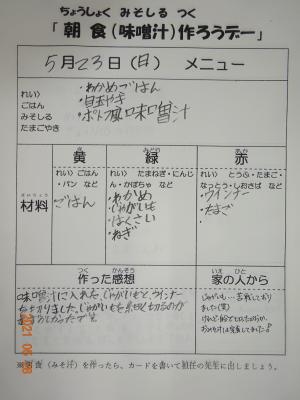 ちょうしょく みそしる つく
「朝食(味噌汁)作ろうデー」
5月23日(日) メニュー
れい)
ごはん
みそしる
たまごやき
・わかめごはん
・目玉やき
・ポトフ風味噌汁
き
黄
みどり
緑
あか
赤
ざいりょう
材料
れい) ごはん
・パン など
ごはん
れい) たまねぎ・にんじ
ん・かぼちゃ など
・わかめ
・じゃがいも
・はくさい
・ねぎ
れい) とうふ・たまご・
なっとう・しおさば など
・ウインナー
・たまご
つく かんそう
作った感想
いえ ひと
家の人から
味噌汁に入れる、じゃがいもと、ウインナー
を切りました。じゃがいもを
じゃがいも…苦戦してお
りました(笑)
おみそ汁は完食してました!
2021 05
※朝食(みそ汁)を作ったら、カードを書いて担任の先生に出しましょう。